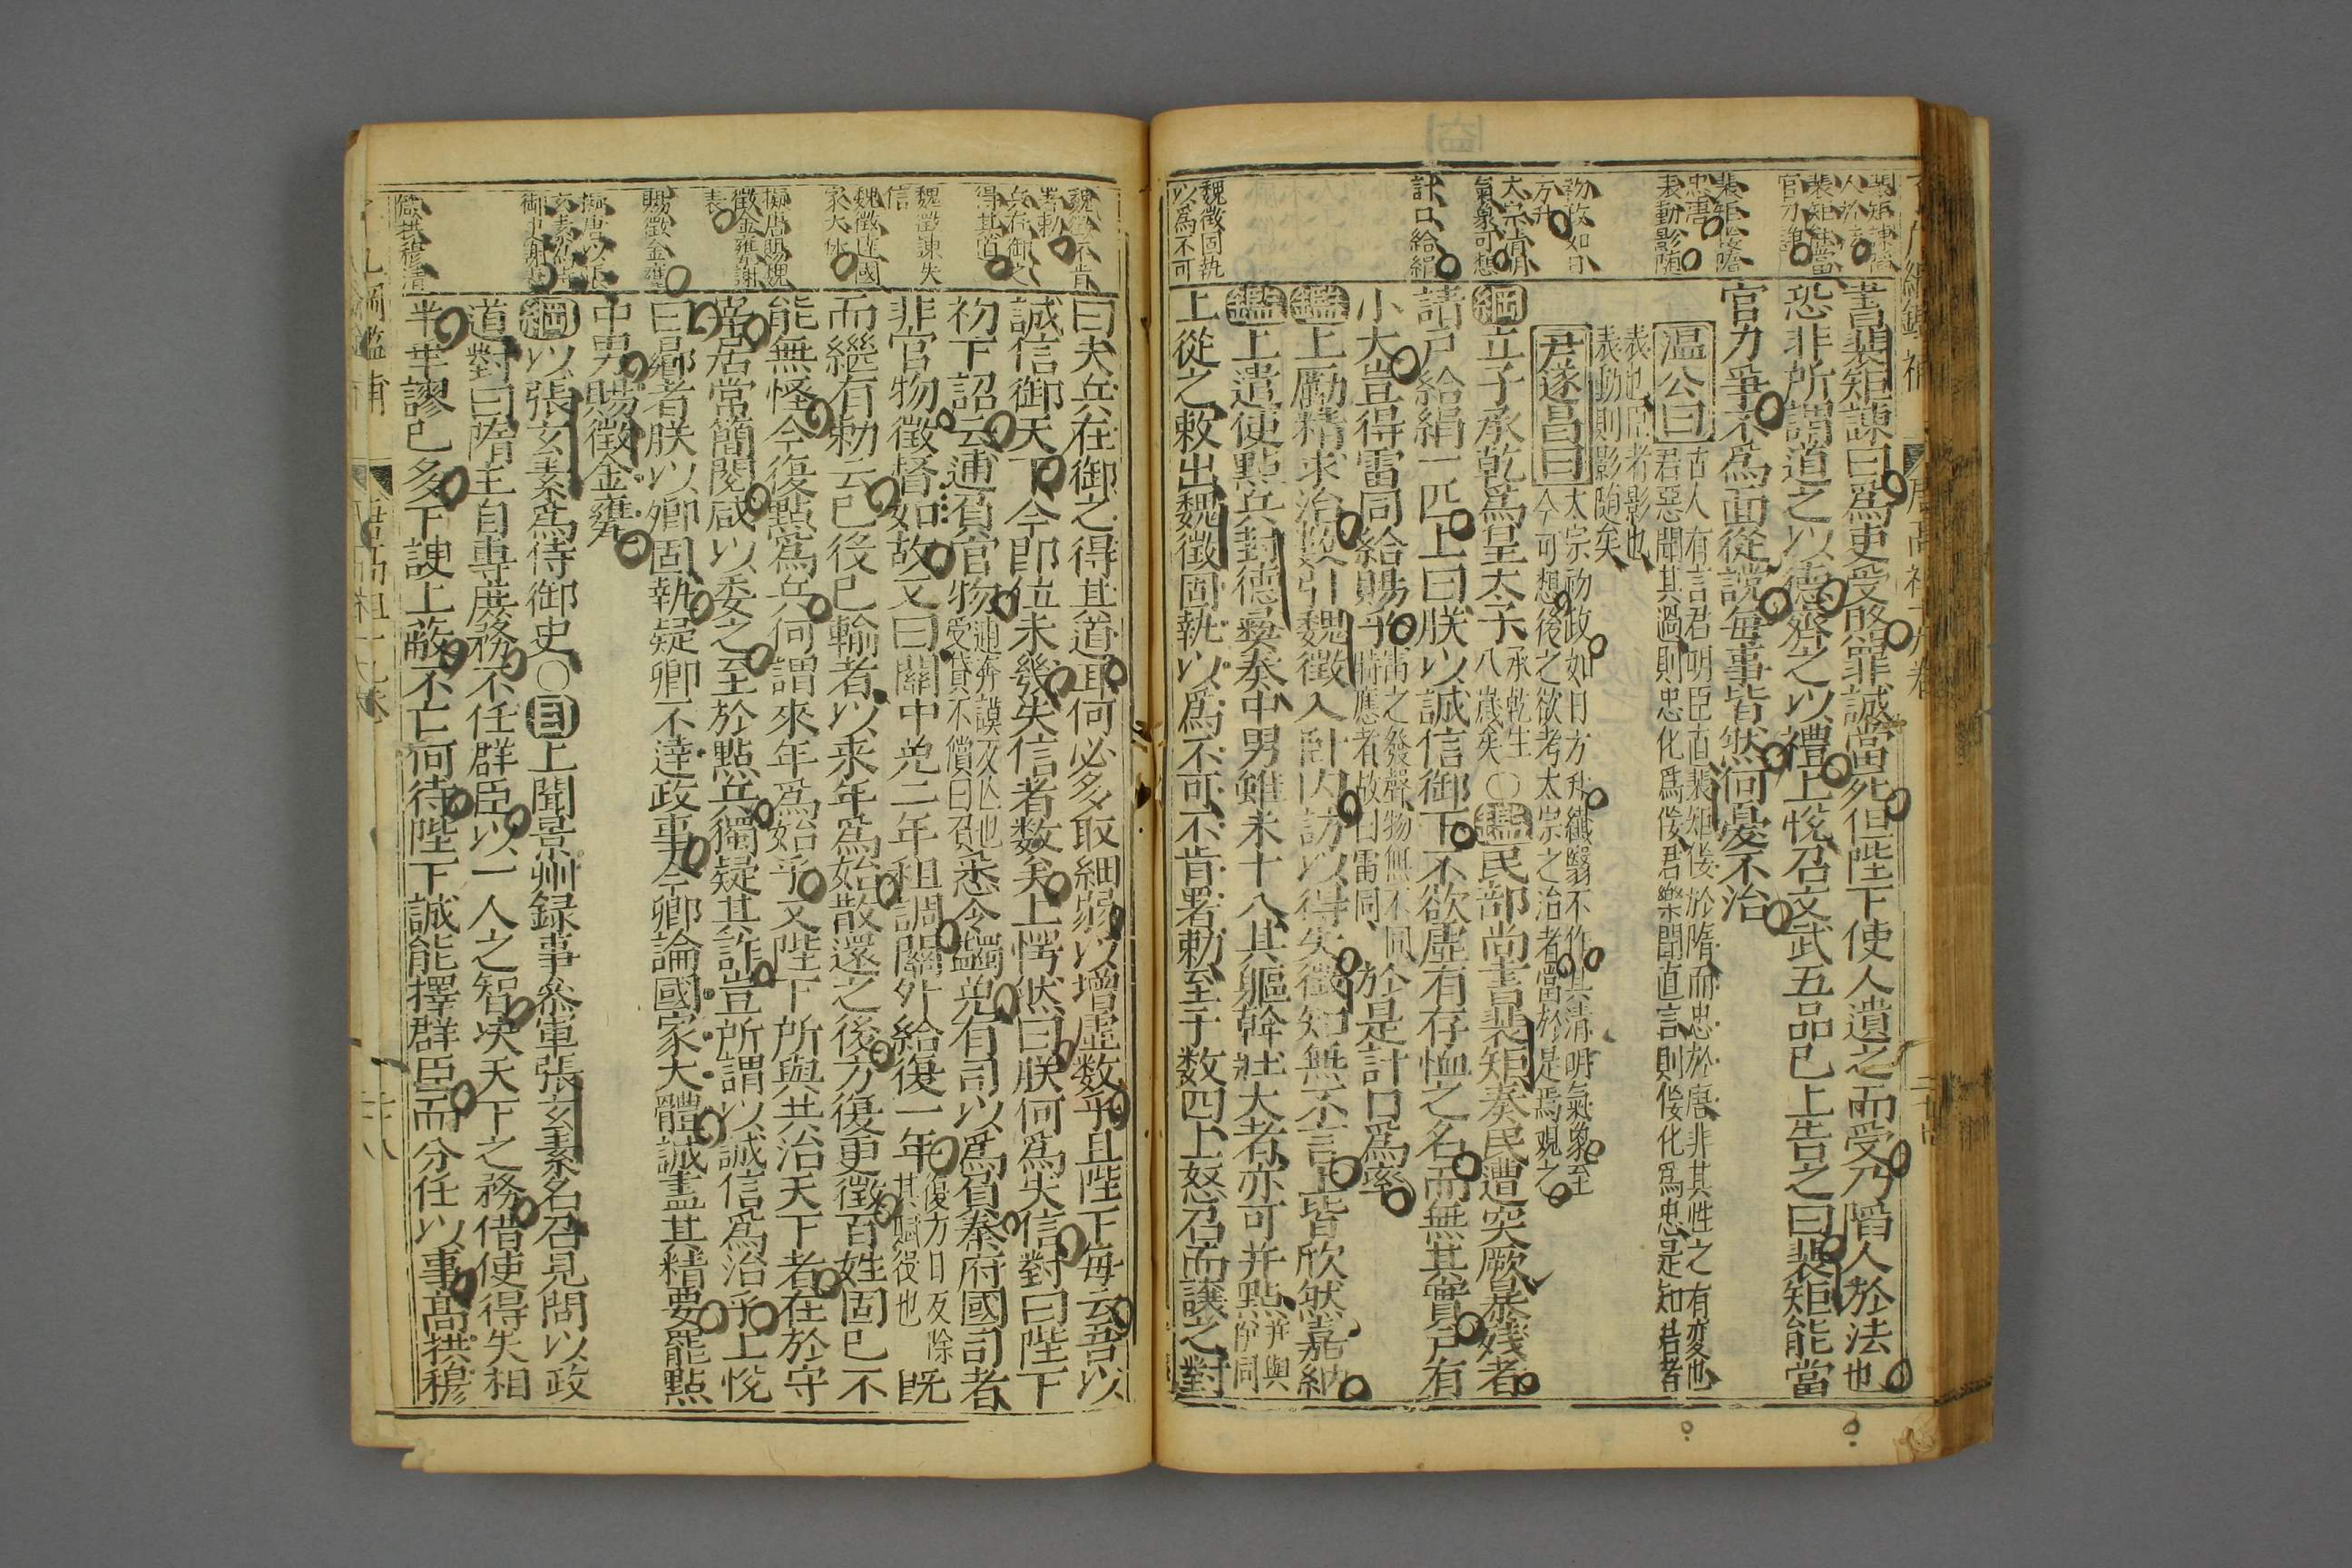 書裴矩諫曰爲吏受賂罪誠當死但陛下使人遺之而受乃陷人於法也
恐非所謂道之以德齊之以禮上悅召文武五品已上告之曰裴矩能當
官力爭不爲面從儻每事皆然何憂不治
溫公曰古人有言君明臣直裴矩佞於隋而忠於唐非其性之有変也
君惡聞其過則忠化爲佞君樂聞直言則佞化爲忠是知君者
表也臣者影也
表動則影随矣
尹遂昌曰太宗初政如日方升纖翳不作其清明氣象至
今可想後之欲考太宗之治者當於是焉观之
綱立子承乾爲皇太子承乾生八歲矣○鑑民部尚書裴矩奏民遭突厥暴殘者
請戶給絹一匹上曰朕以誠信御下不欲虛有存恤之名而無其實戶有
小大豈得雷同給賜乎雷之發聲物無不同時應者故曰雷同於是計口爲率
鑑上勵精求治數引魏徵入卧内訪以得失徵知無不言上皆欣然嘉納
鑑上遣使點兵封德彝奏中男雖未十八其軀幹壯大者亦可并點并與併同
上從之敕出魏徵固執以爲不可不肯署勅至于数四上怒召而讓之對
裴矩諫
裴矩能當
官力
裴矩佞隋
忠唐
表動影随
初政如日
方升
太宗清明
氣象可想
計口給絹
魏徵固執
以爲不可
曰夫兵在御之得其道耳何必多取細弱以增虛数乎且陛下每云吾以
誠信御天下今即位未幾失信者数矣上愕然曰朕何爲失信對曰陛下
初下詔云逋負官物逋奔謨反亡也受貸不償曰負悉令蠲免有司以爲負秦府國司者
非官物徵督如故又曰關中免二年租調關外給復一年復方目反除其賦役也既
而繼有勅云已役已輸者以来年爲始散還之後方復更徵百姓固已不
能無怪今復點爲兵何謂來年爲始乎又陛下所與共治天下者在於守
宰居常簡閱咸以委之至於點兵獨疑其詐豈所謂以誠信爲治乎上悅
曰曏者朕以卿固執疑卿不達政事今卿論國家大體誠盡其精要罷點
中男賜徵金甕
綱以張玄素爲侍御史○目上聞景州録事參軍張玄素名召見問以政
道對曰隋主自專庶務不任群臣以一人之智决天下之務借使得失相
半乖謬已多下諛上蔽不亡何待陛下誠能擇群臣而分任以事高拱穆
魏徵不肯
署勅
兵在御之
得其道
魏徵諫失
信
魏徵達國
家大体
擬唐賜魏
徵金甕謝
表
賜徵金甕
擬唐以張
玄素爲侍
御史謝表
高拱穆清
唐高祖十九卷